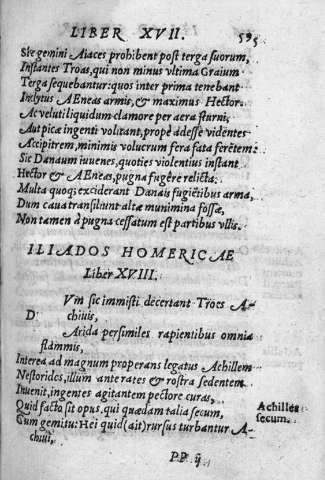 LIBER XVII. 595
Sic gemini Aiaces prohibent post terga suorum,
Instantes Troas, qui non minus vltima Graium
Terga sequebantur: quos inter prima tenebant
Inclytus AEneas armis, & maximus Hector.
Ac velut liquidum clamore per aera sturni,
Aut picæ ingenti volitant, prope adesse videntes
Accipitrem, minimis volucrum fera fata ferētem:
Sic Danaum iuuenes, quoties violentius instant
Hector & AEneas, pugna fugêre relicta.
Multa quoq; exciderant Danais fugiētibus arma,
Dum caua transiliunt altæ munimina fossæ,
Non tamen à pugna cessatum est partibus vllis.
ILIADOS HOMERICAE
Liber XVIII.
DVm sic immisti decertant Troes A-
chiuis,
Arida persimiles rapientibus omnia
flammis,
Interea ad magnum properans legatus Achillem
Nestorides, illum ante rates & rostra sedentem
Inuenit, ingentes agitantem pectore curas,
Quid facto sit opus, qui quædam talia secum,
Cum gemitu: Hei quid (ait) rursus turbantur A-
chiui,
Achilles
secum.
PP ij